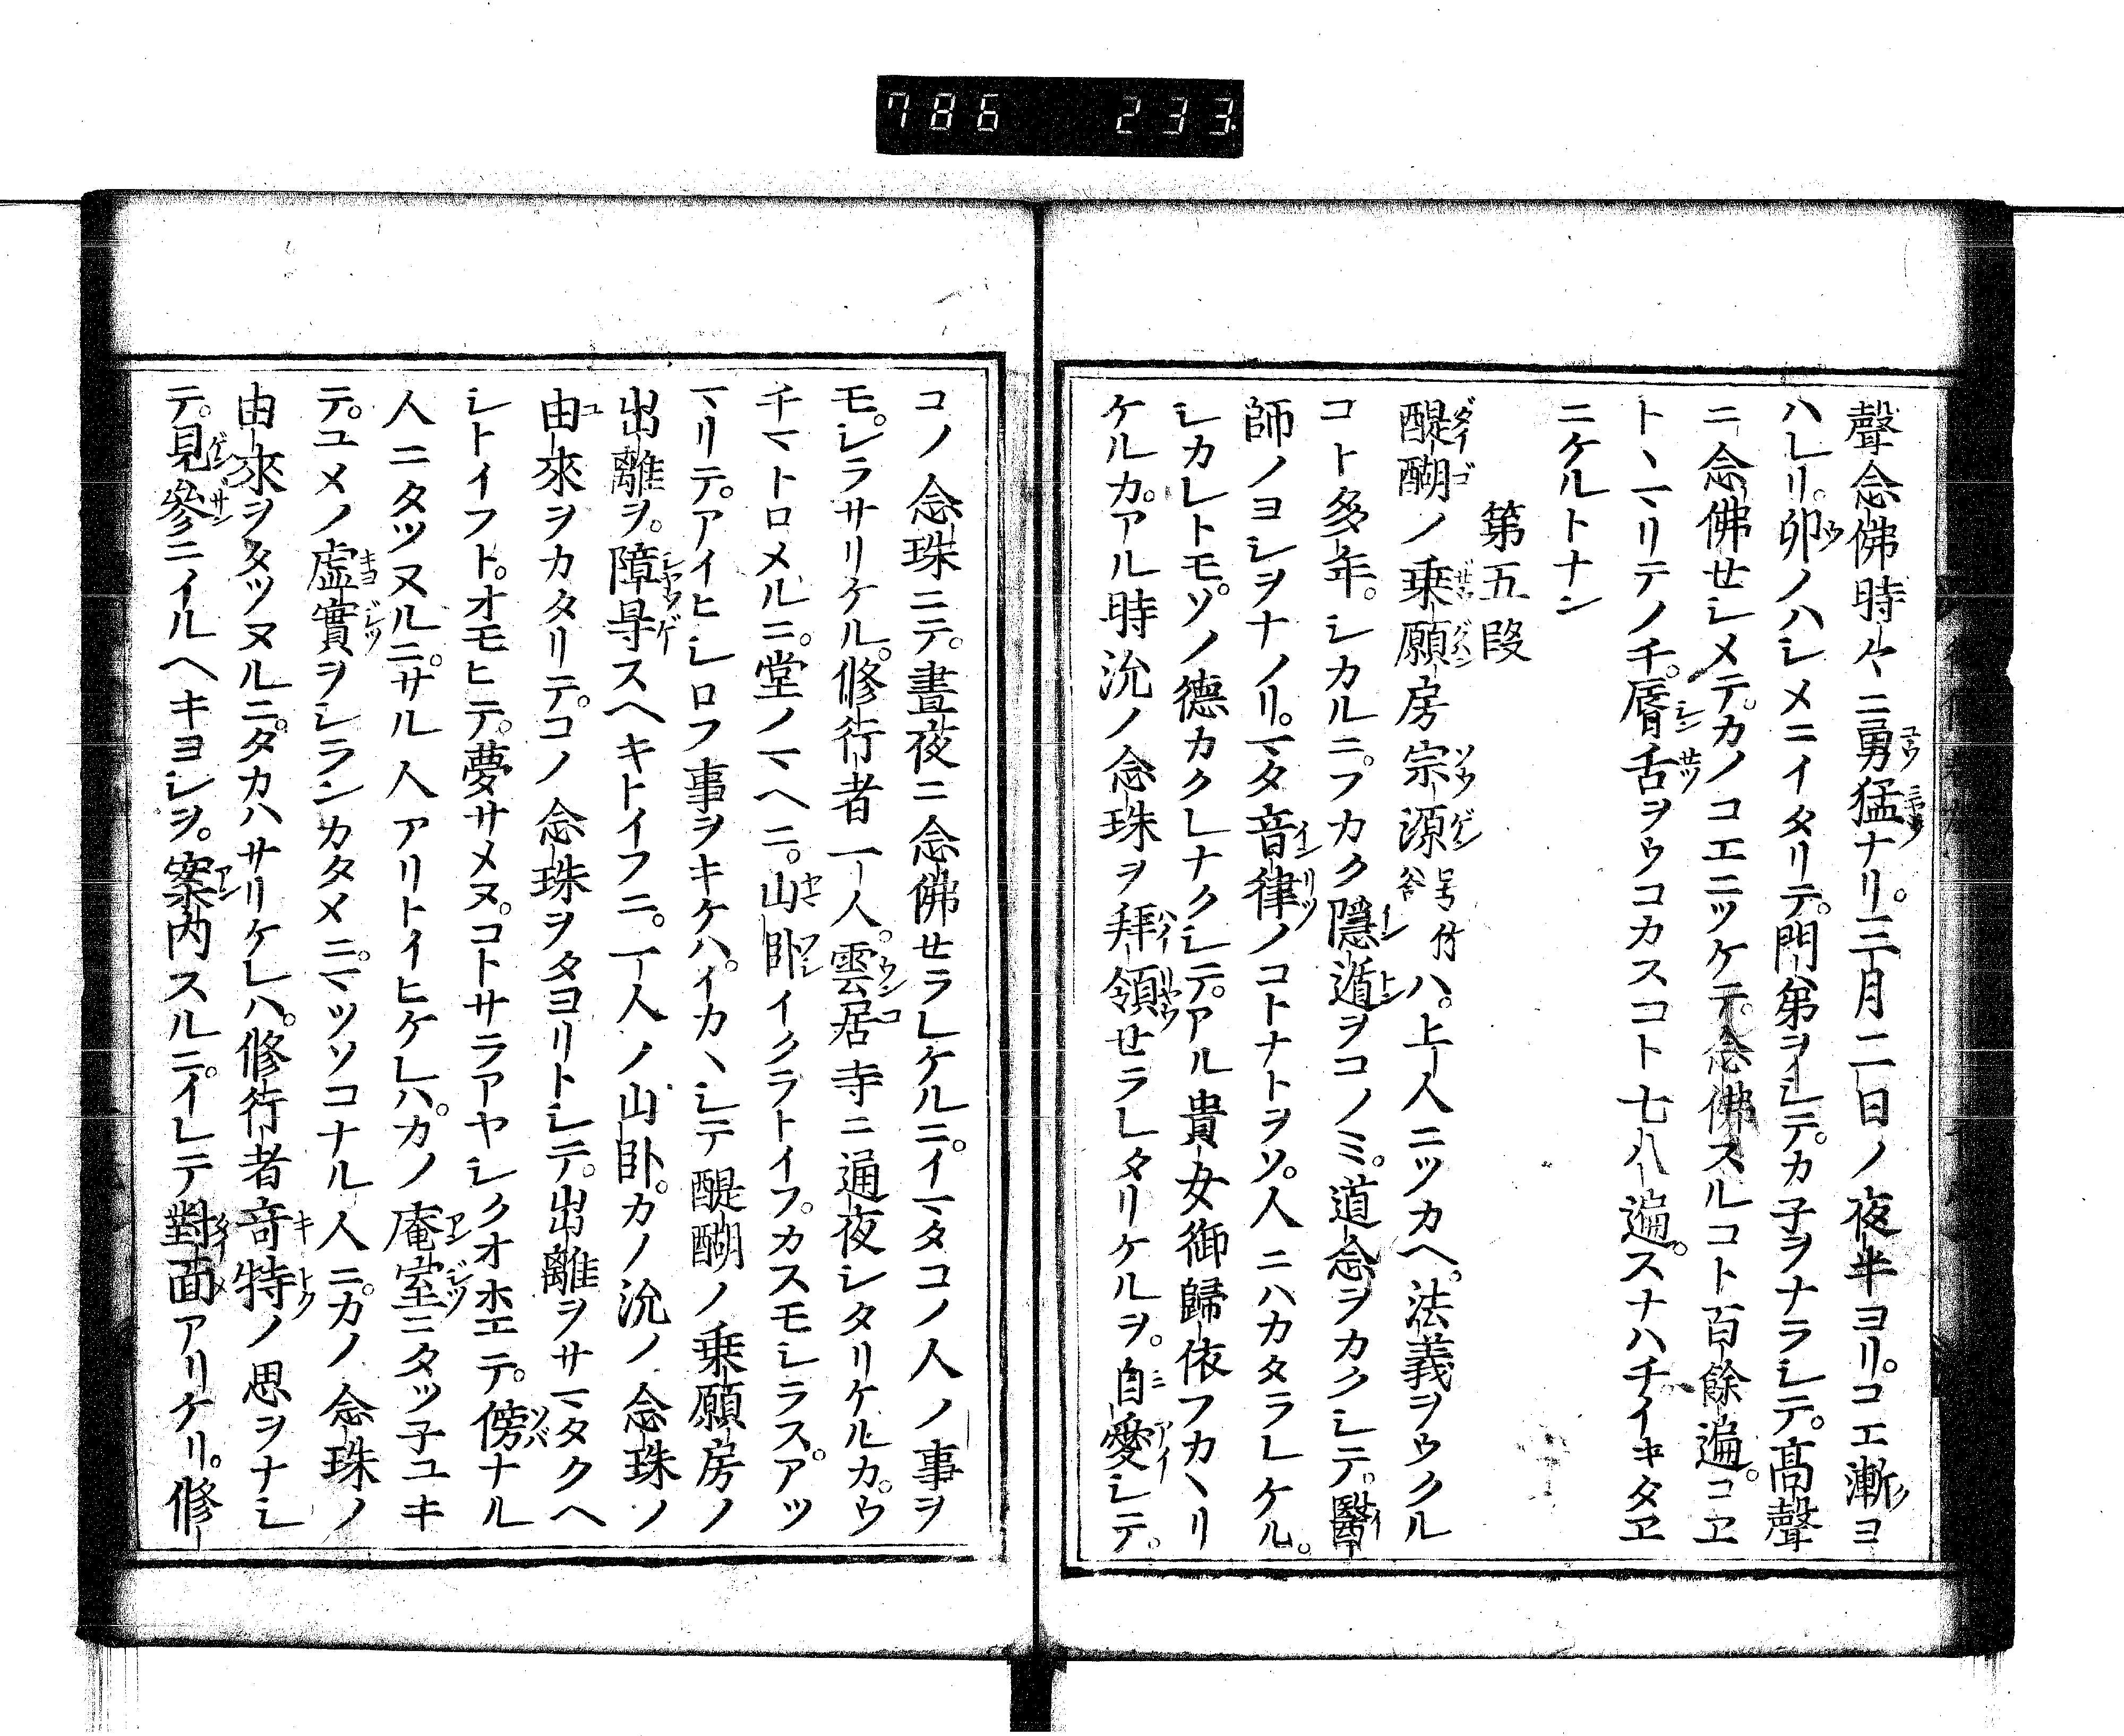 786 233
聲念佛時々ニ勇猛ナリ。三月二日ノ夜半ヨリ。コエ漸ヨ
ハレリ。卯ノハシメニイタリテ。門弟ヲイレテ。カ子ヲナラシテ。髙聲
ニ念佛せシメテ。カノコエニツケテ。念佛スルコト百餘遍。コヱ
トヽマリテノチ。脣舌ヲウコカスコト七八遍。スナハチイキタヱ
ニケルトナン
第五段
醍醐ノ乗願房宗源号竹谷ハ。上人ニツカヘ。法義ヲウクル
コト多年。シカルニ。フカク隱遁ヲコノミ。道念ヲカクシテ。醫
師ノヨシヲナノリ。マタ音律ノコトナトヲソ。人ニハカタラレケル。
シカレトモ。ソノ德カクレナクシテ。アル貴女御歸依フカヽリ
ケルカ。アル時沈ノ念珠ヲ拜領せラレタリケルヲ。自愛シテ。
コノ念珠ニテ。晝夜ニ念佛せラレケルニ。イマタコノ人ノ事ヲ
モ。シラサリケル。修行者一人。雲居寺ニ通夜シタリケルカ。ウ
チマトロメルニ。堂ノマヘニ。山卧イクラトイフ。カスモシラス。アツ
マリテ。アイヒシロフ事ヲキケハ。イカヽシテ醍醐ノ乗願房ノ
出離ヲ。障㝵スヘキトイフニ。一人ノ山卧。カノ沈ノ念珠ノ
由來ヲカタリテ。コノ念珠ヲタヨリトシテ。出離ヲサマタクヘ
シトイフト。オモヒテ。夢サメヌ。コトサラアヤシクオホエテ。傍ナル
人ニタツヌルニ。サル人アリトイヒケレハ。カノ庵室ニタツ子ユキ
テ。ユメノ虚實ヲシランカタメニ。マツソコナル人ニ。カノ念珠ノ
由來ヲタツヌルニ。タカハサリケレハ。修行者竒特ノ思ヲナシ
テ。見參ニイルヘキヨシヲ。案内スルニ。イレテ對面アリケリ。修